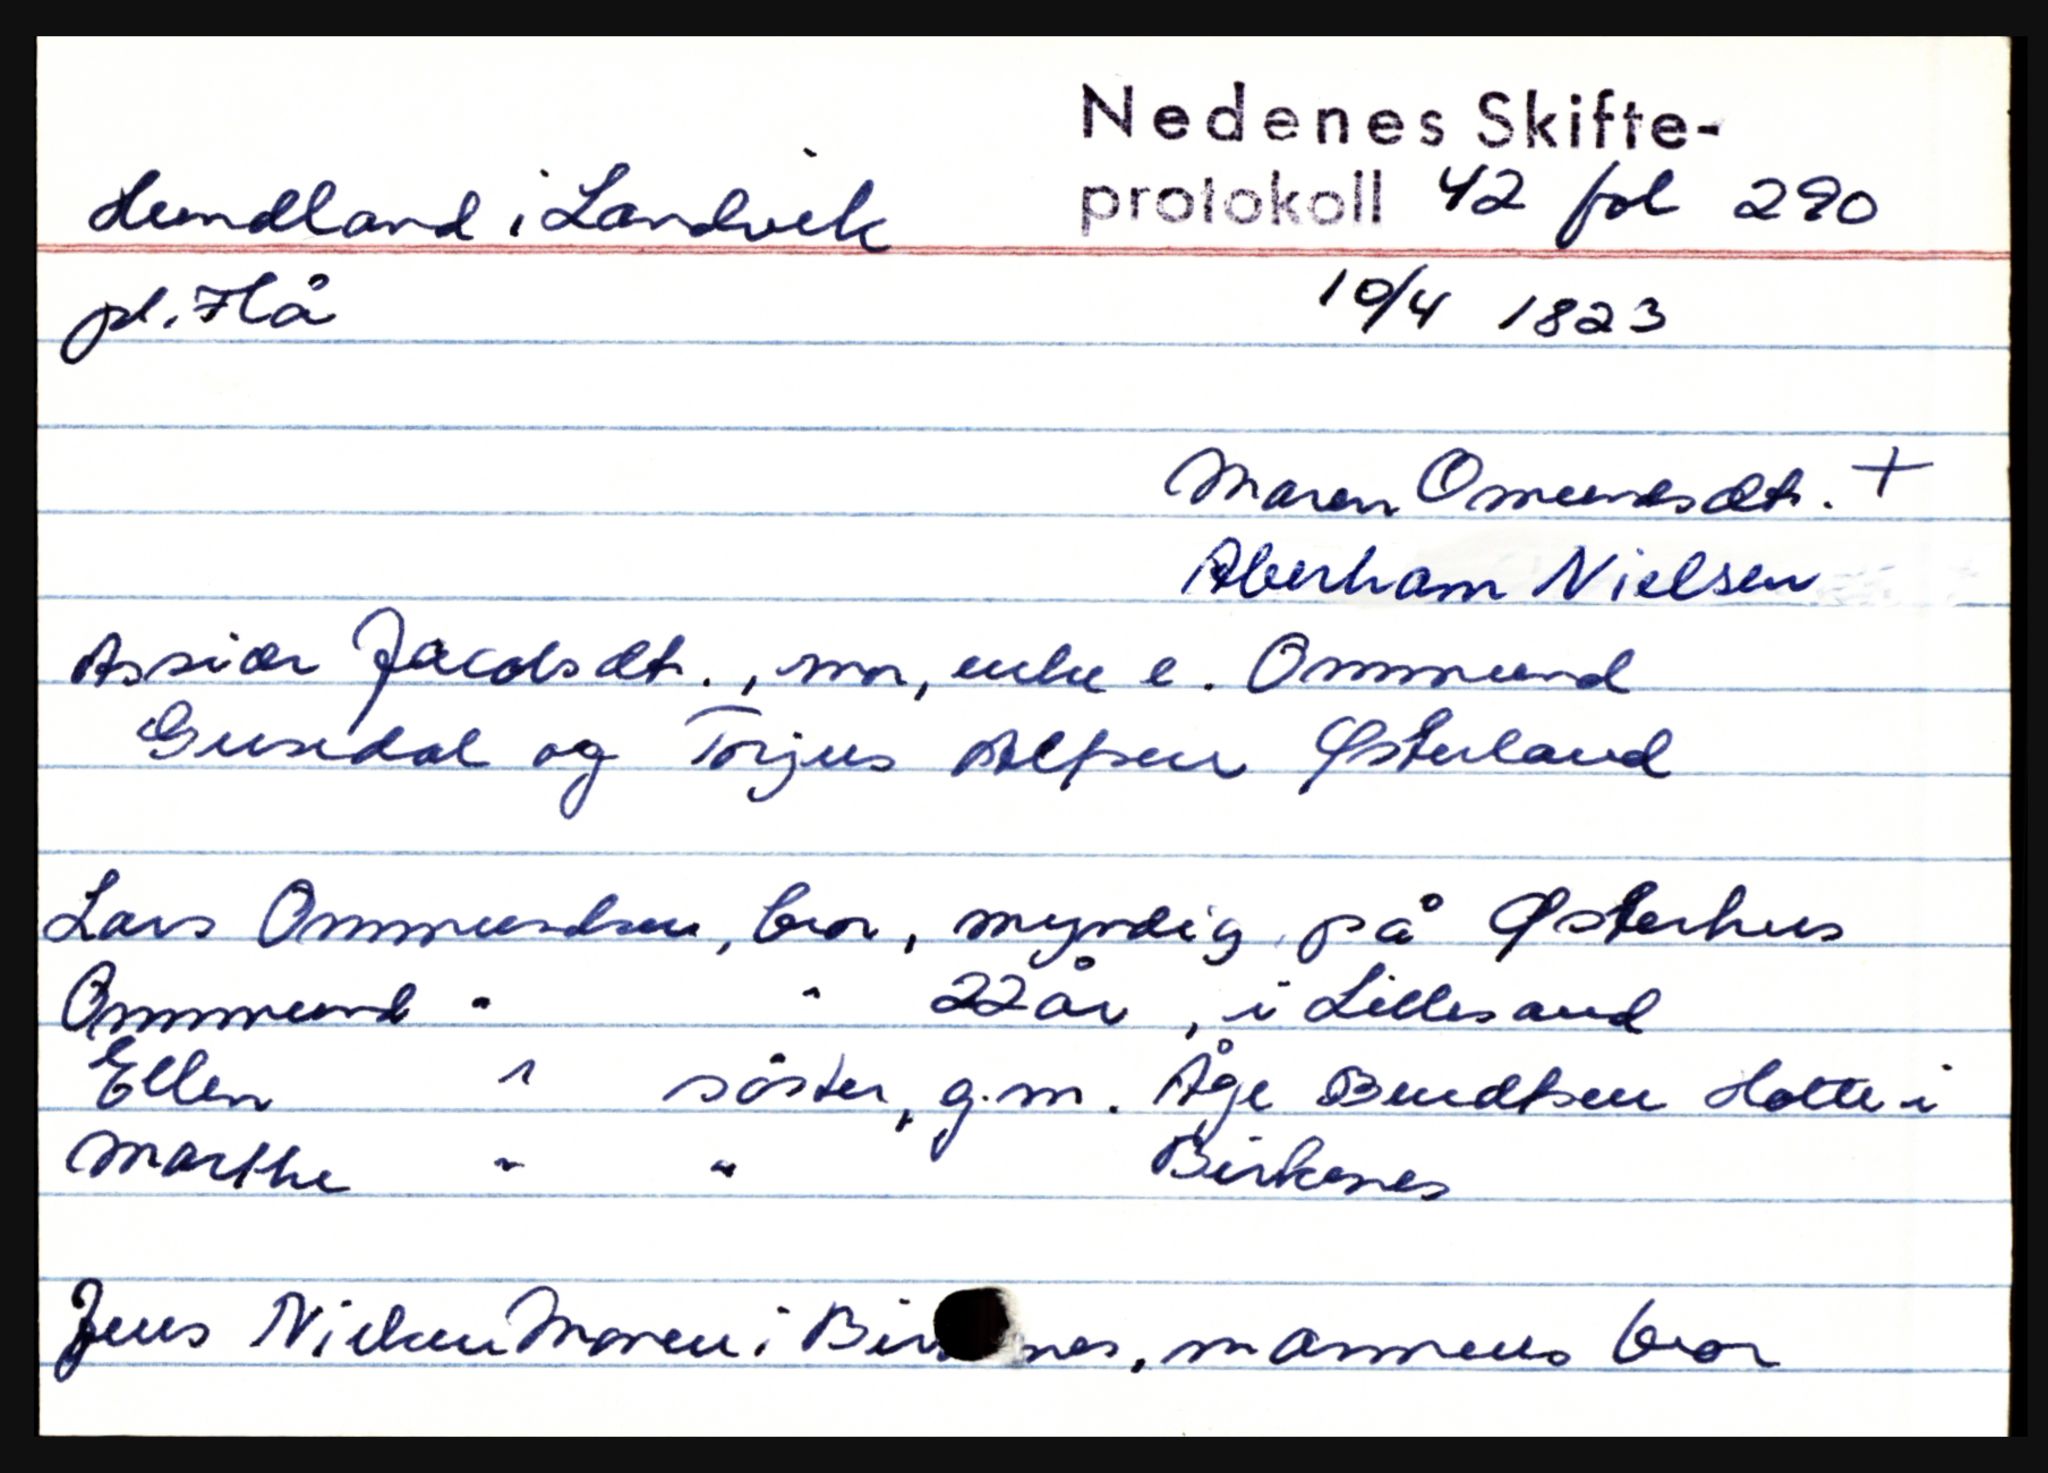 Nedenes Skifte-
Hundland i Landvik protokoll 42 fol 290
pl. Flå 10/4 1823
Maren Omundsdt. +
Aberham Nielsen
Assiær Jacobsdt., mor, enke e. Ommund
Gusedal og Torjus Alfsen Østerland
Lars Ommundsen, bror, myndig på Østerhus
Ommund " " 22 år, i Lillesand
Ellen " söster, g.m. Åge Bendtsen Hotte i
Marthe " " Birkenes
Jens Nielsen Moren i Birkenes, mannens bror